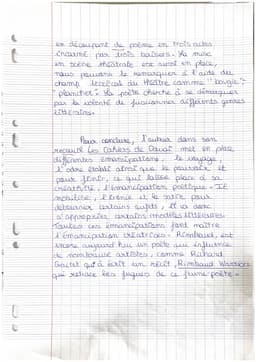 en découpant le poème en trois actes
incarné par trois baisers. La mise
en scène théâtrale est aussi en place,
nous pouvons le remarquer à l'aide du
champ lexical du théâtre comme "bougie",
"plancher". Le poète cherche à se démarquer
par la volonté de fusionner différents genres
littéraires.
Pour conclure, l'auteur dans son
recueil Les Cahiers de Douai met en place
différentes émancipations, le voyage,
l'ordre établi ainsi que le pouvoir et
pour finir, ce qui laisse place à sa
créativité, l'émancipation poétique. Il
mobilise, l'ironie et la satire pour
détourner certains sujets, il va donc
s'approprier certains modèles littéraires.
Toutes ces émancipations font naître
l'émancipation créatrice. Rimbaud, est
encore aujourd'hui un poète qui influence
de nombreux artistes, comme Richard
Gaitet qui a écrit un récit, Rimbaud Warriors
qui retrace les fugues de ce jeune poète.